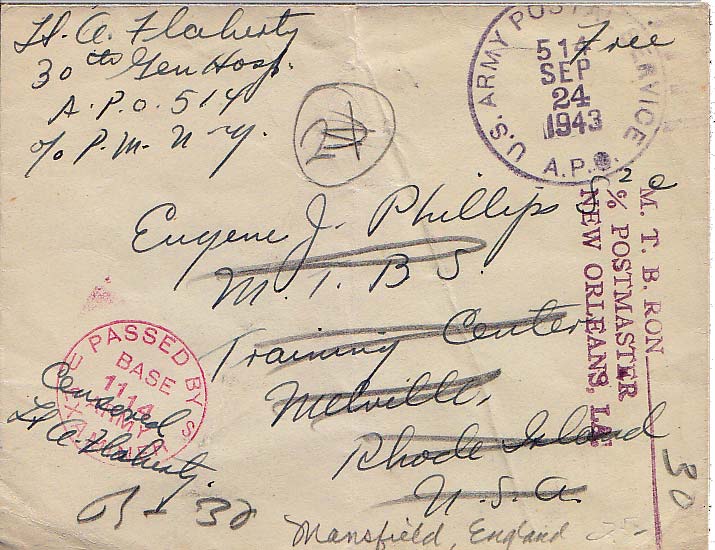 Lt. A. Flaherty
30th Gen Hosp.
A.P.O. 514
c/o P.M. N.Y.
Free
U.S. ARMY POSTAL SERVICE
514
SEP
24
1943
A.P.O.
Eugene J. Phillips S 2 c
M.T.B.S.
Training Center
Melville,
Rhode Island
U.S.A.
M. T. B. RON
c/o POSTMASTER
NEW ORLEANS, LA.
30
PASSED BY
BASE
1114
ARMY
Censored
Lt A. Flaherty.
B - 30
Mansfield, England